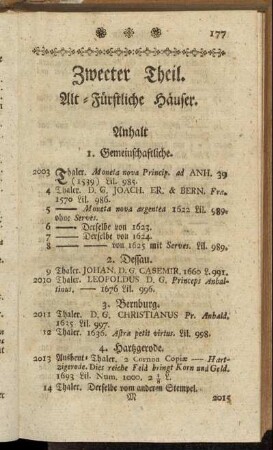 177
Zweeter Theil.
Alt-Fürstliche Häuser.
Anhalt
1. Gemeinschaftliche.
2003 Thaler. Moneta nova Princip. ad ANH. 39
(1539) Lil. 985.
4 Thaler. D. G. JOACH. ER. & BERN. Fra.
1570 Lil. 986.
5 —— Moneta nova argentea 1622 Lil. 989.
ohne Serves.
6 —— Derselbe von 1623.
7 —— Derselbe von 1624.
8 —— —— von 1625 mit Serves. Lil. 989.
2. Dessau.
9 Thaler. JOHAN. D. G. CASEMIR. 1660 L. 991.
2010 Thaler. LEOPOLDUS D. G. Princeps Anhal-
tinus, —— 1676 Lil. 996.
3. Bernburg.
2011 Thaler. D. G. CHRISTIANUS Pr. Anhald.
1625 Lil. 997.
12 Thaler. 1636. Astra petit virtus. Lil. 998.
4. Hartzgerode.
2013 Ausbeut-Thaler. 2 Cornua Copiæ — Hart-
zigerode. Dies reiche Feld bringt Korn und Geld.
1693 Lil. Num. 1000. 2 1/8 L.
14 Thaler. Derselbe vom anderen Stempel.
M 2015